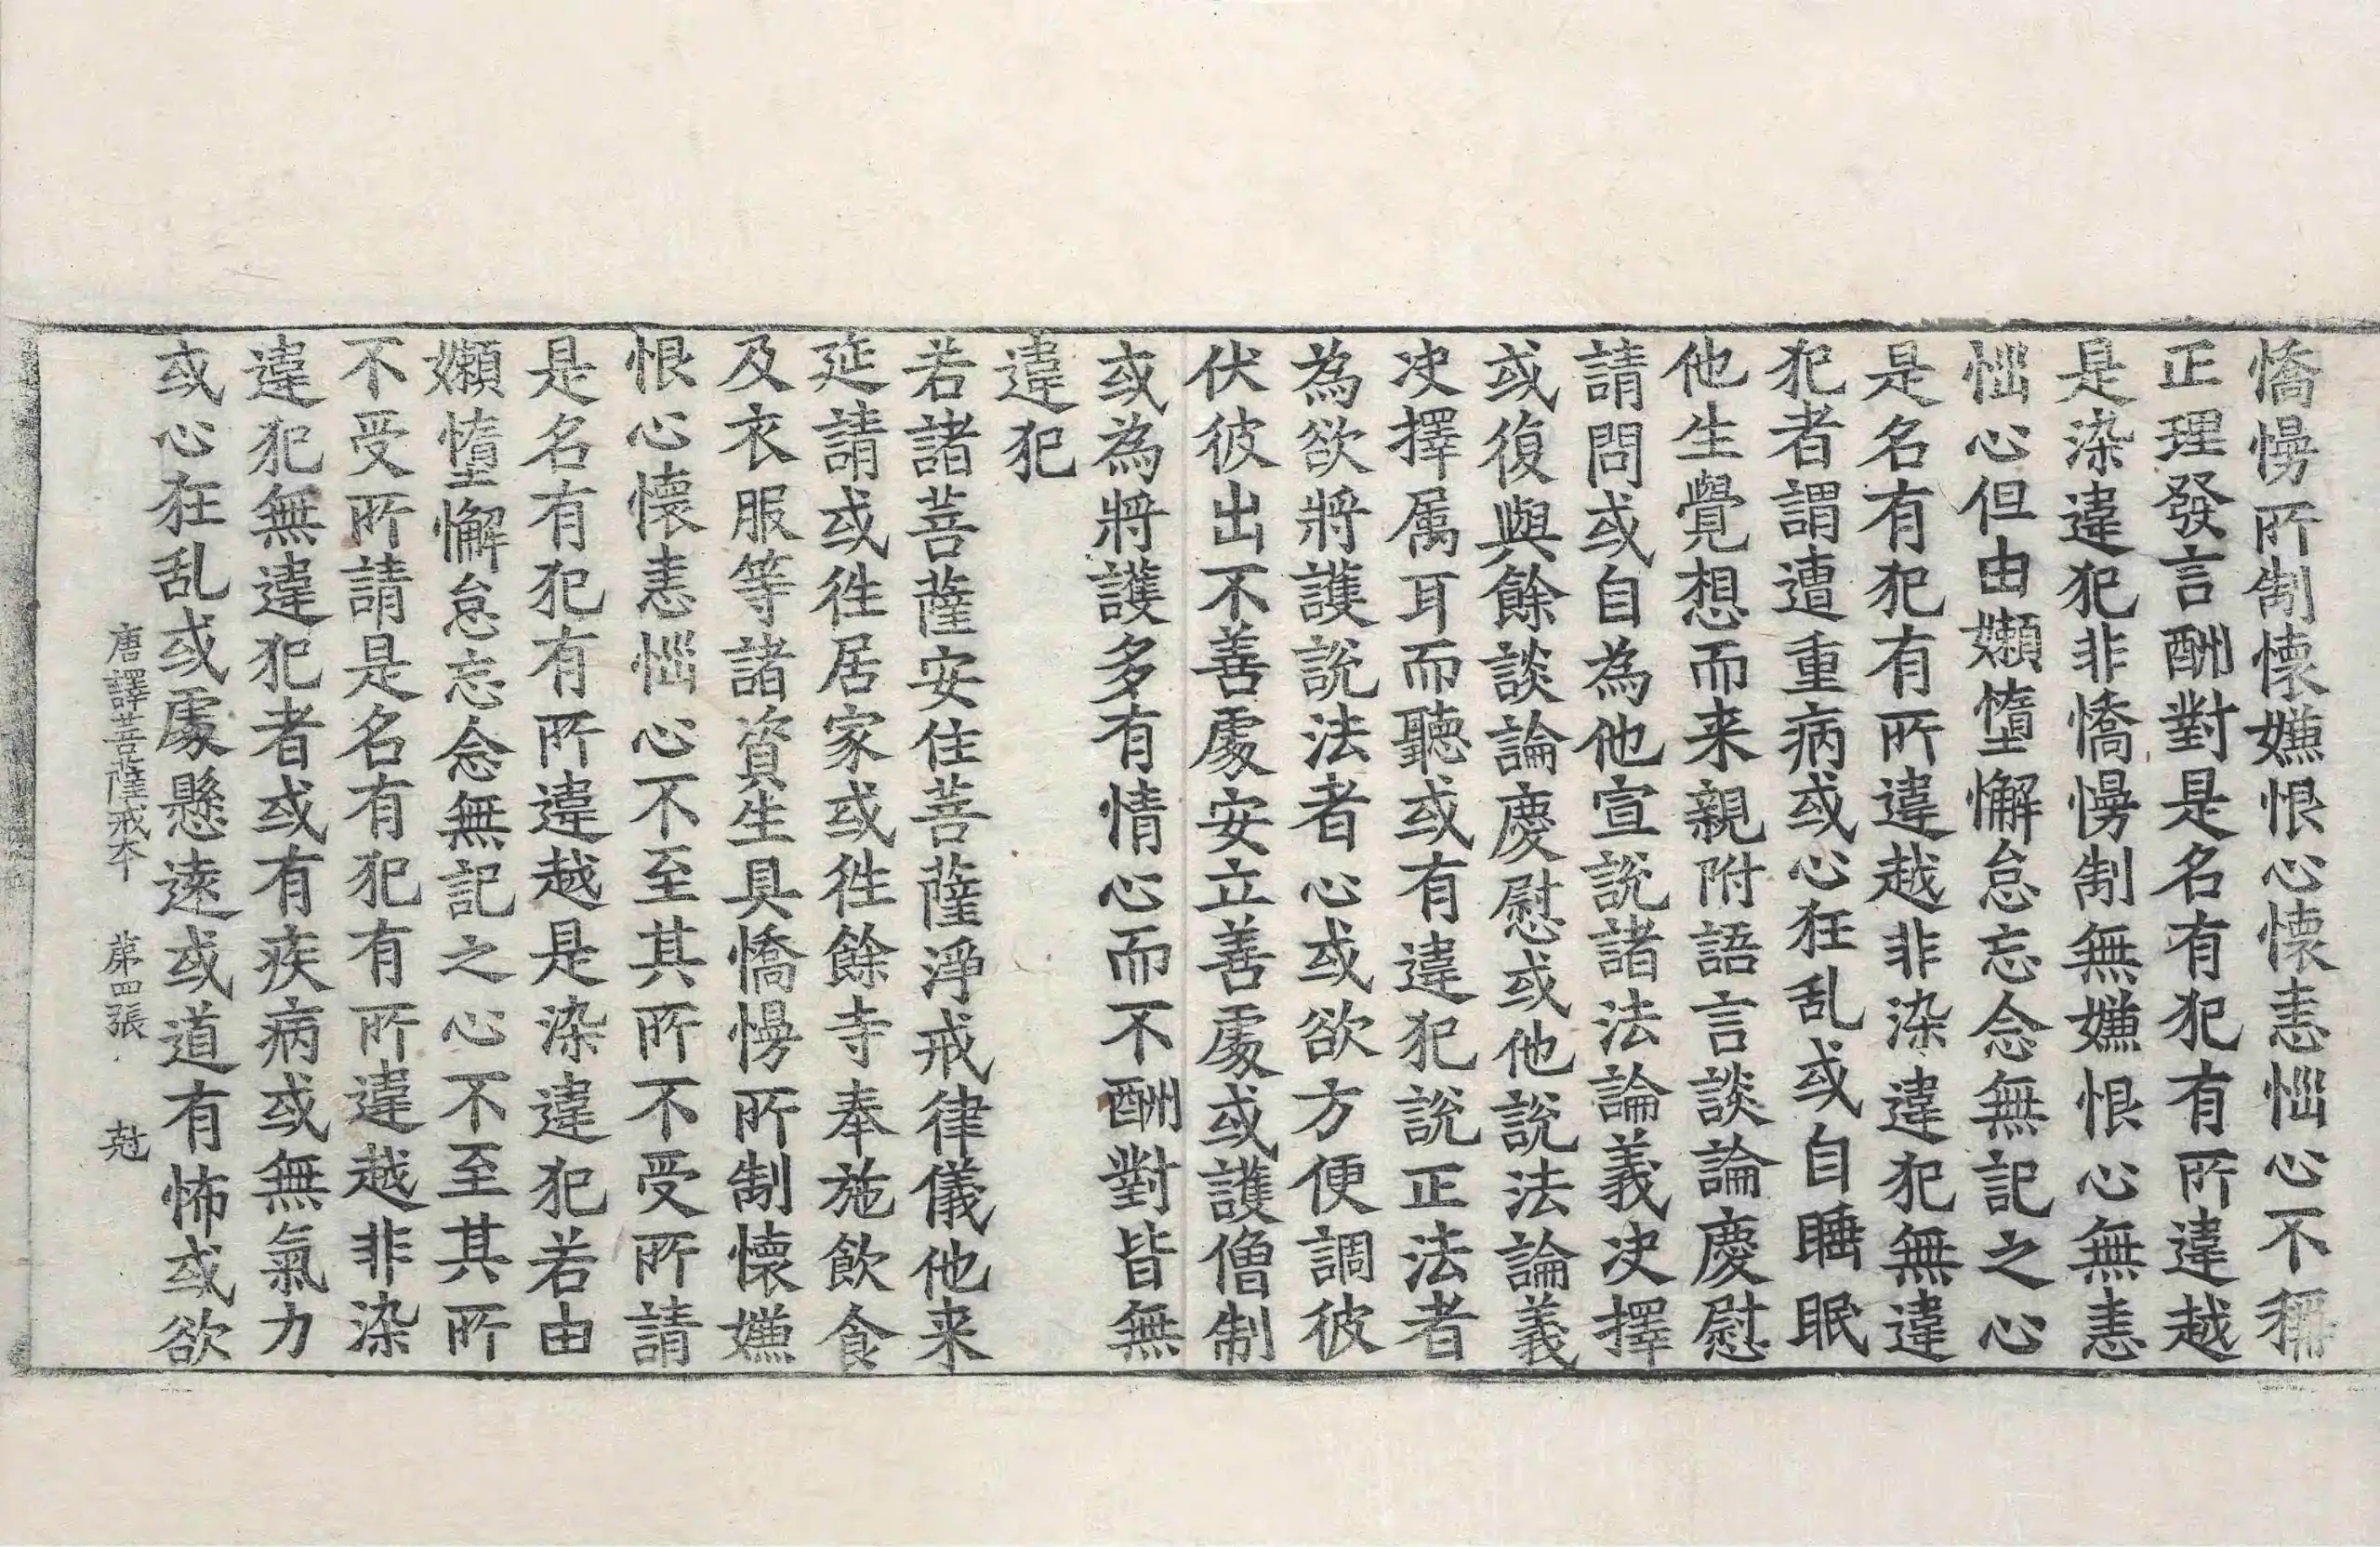 憍慢所制懐嫌恨心懐恚惱心不稱
正理發言酬對是名有犯有所違越
是染違犯非憍慢制無嫌恨心無恚
惱心但由嬾墮懈怠忘念無記之心
是名有犯有所違越非染違犯無違
犯者謂遭重病或心狂乱或自睡眠
他生覺想而来親附語言談論慶慰
請問或自為他宣說諸法論義決擇
或復與餘談論慶慰或他說法論義
決擇属耳而聽或有違犯說正法者
為欲將護說法者心或欲方便調彼
伏彼出不善處安立善處或護僧制
或為將護多有情心而不酬對皆無
違犯
若諸菩薩安住菩薩淨戒律儀他来
延請或徃居家或徃餘寺奉施飲食
及衣服等諸資生具憍慢所制懷嫌
恨心懷恚惱心不至其所不受所請
是名有犯有所違越是染違犯若由
嬾墮懈怠忘念無記之心不至其所
不受所請是名有犯有所違越非染
違犯無違犯者或有疾病或無氣力
或心狂乱或處懸遠或道有怖或欲
唐譯菩薩戒本 苐四張 尅